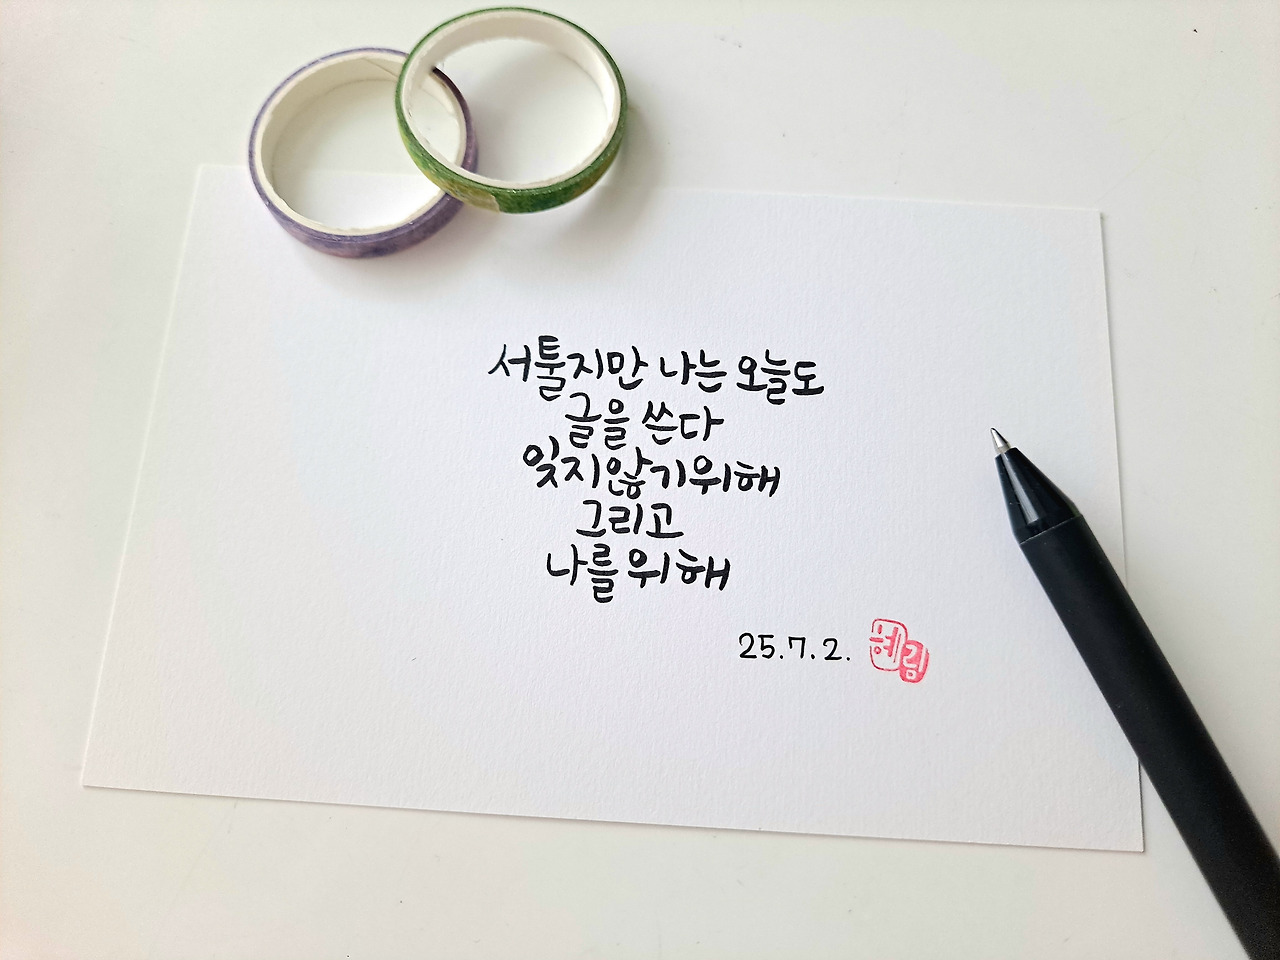 서툴지만 나는 오늘도
글을 쓴다
잊지않기위해
그리고
나를위해
25.7.2. 혜림